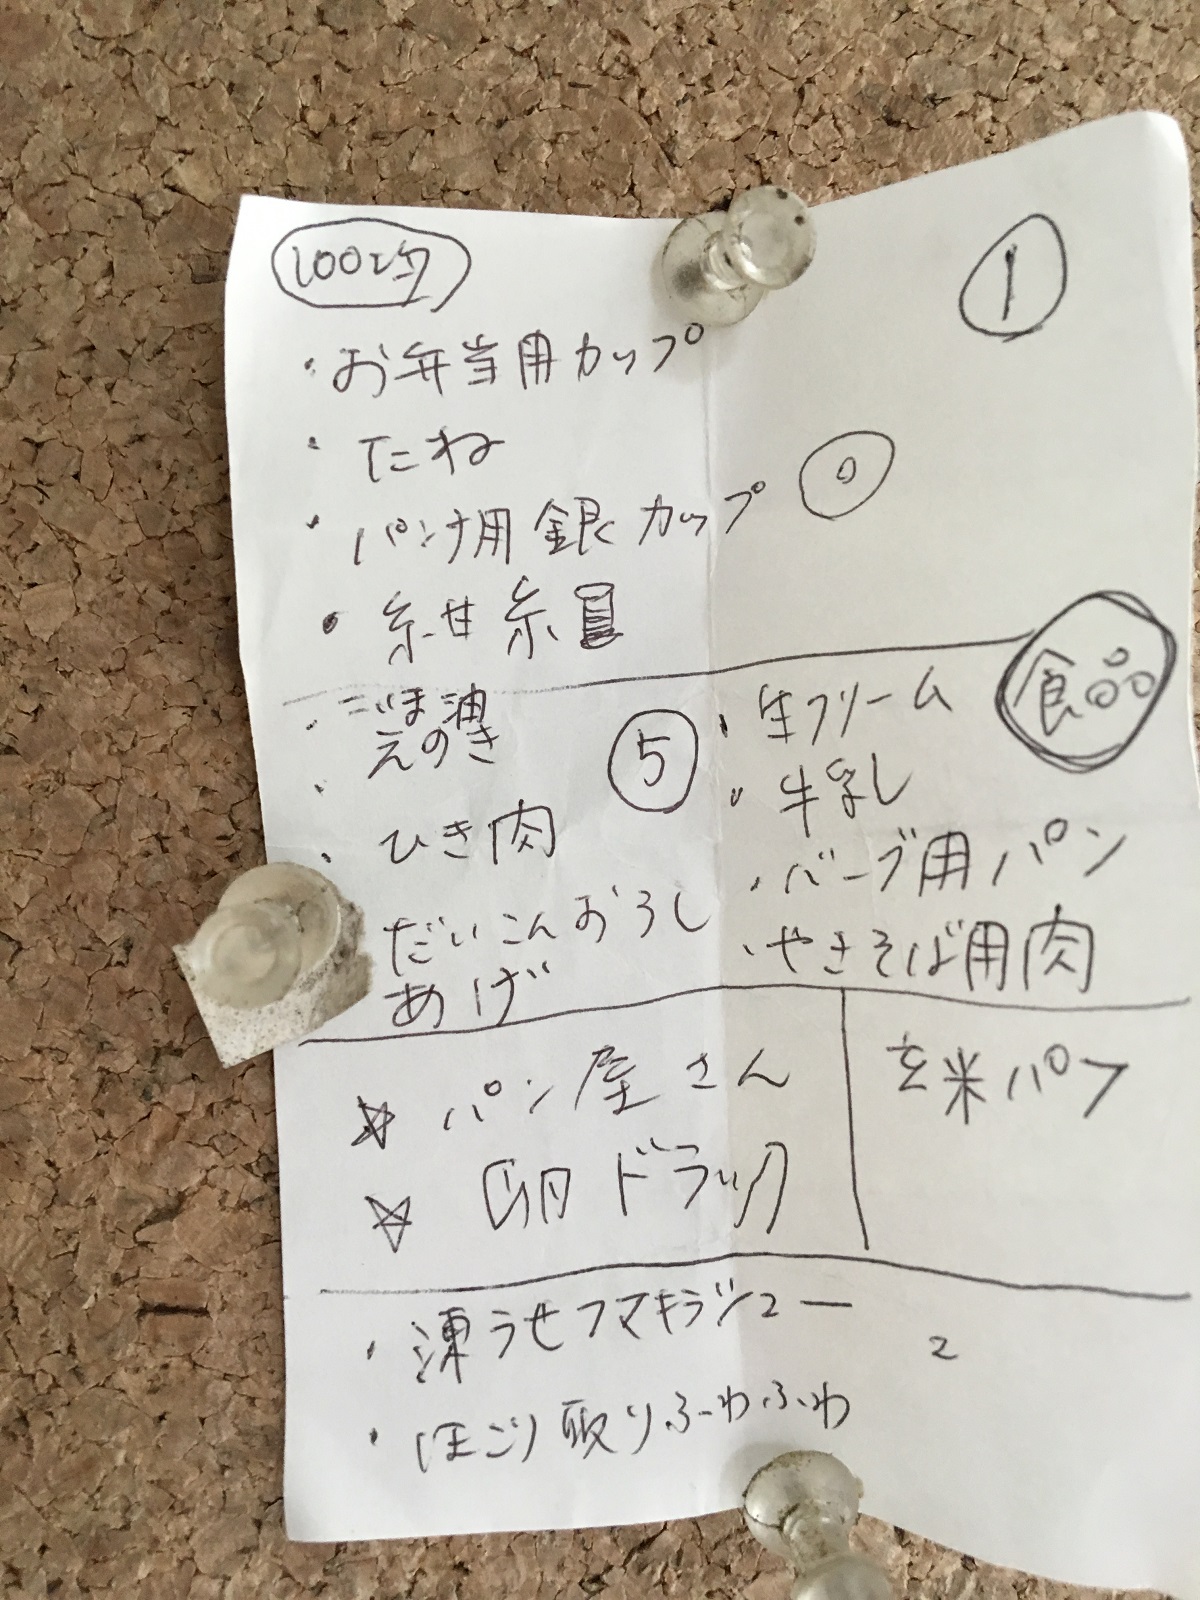 100均
①
・お弁当用カップ
・たね
・パン用銀カップ
・紺糸
食品
・ごま油
えのき
・ひき肉
だいこんおろし
あげ
⑤
・生クリーム
・牛乳
・バーグ用パン
・やきそば用肉
☆ パン屋さん
☆ 卵 ドラッグ
玄米パフ
2
・ほこり取りふわふわ